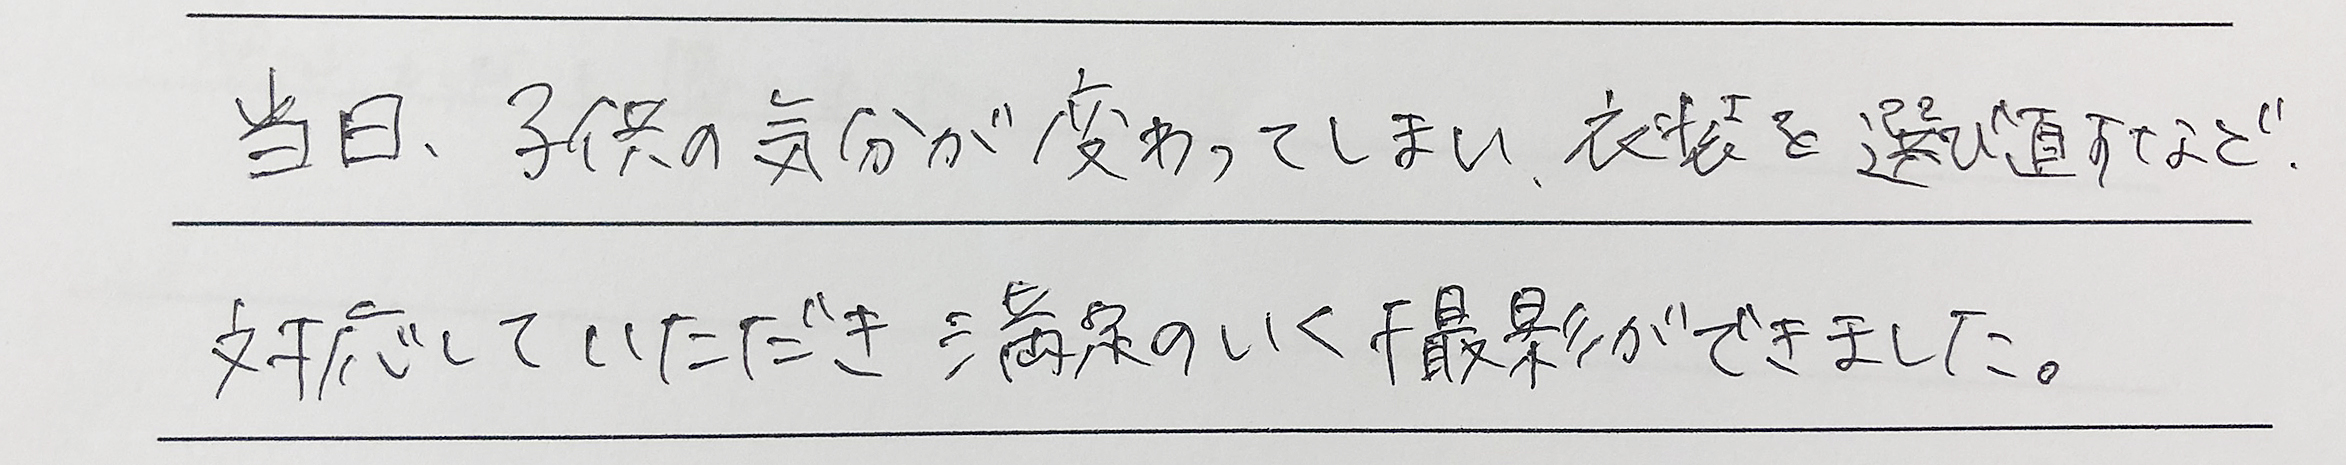 当日、子供の気分が変わってしまい、衣装を選び直すなど、
対応していただき満足のいく撮影ができました。